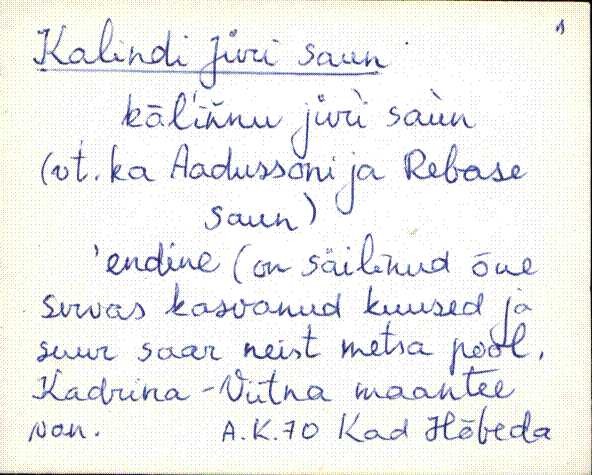 1
Kalindi Jüri saun
kāl'iǹnu jüri saùn
(vt. ka Aadussoni ja Rebase
saun)
'endine (on säilinud õue
servas kasvanud kuused ja
suur saar neist metsa pool.
Kadrina-Viitna maantee
A.K.70 Kad Hõbeda